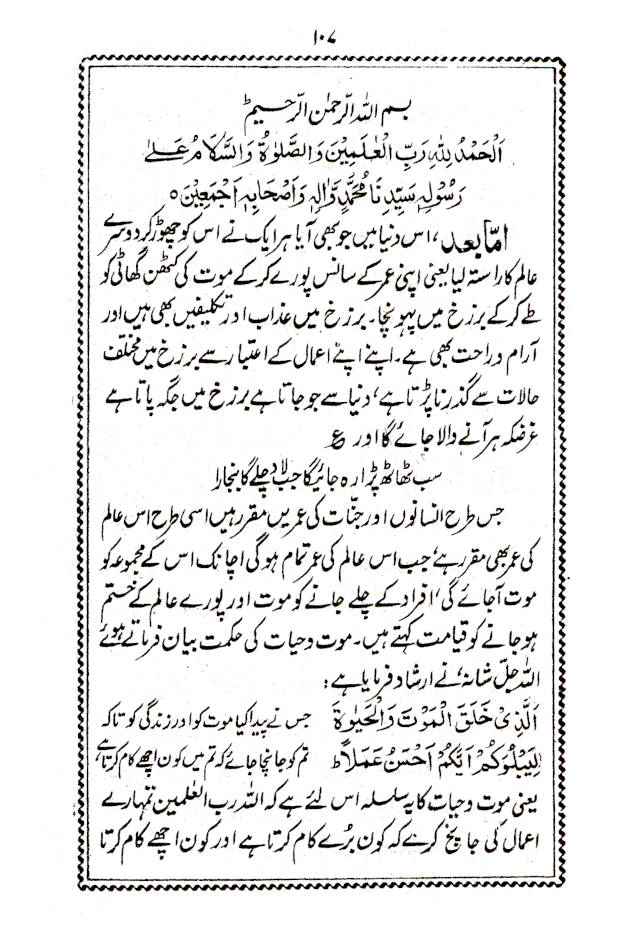 ۱۰۷
بسم اللہ الرّحمٰن الرّحیم ط
اَلْحَمْدُ لِلّٰهِ رَبِّ الْعٰلَمِیْنَ وَالصَّلٰوةُ وَالسَّلَامُ عَلٰی
رَسُوْلِهٖ سَیِّدِنَا مُحَمَّدٍ وَّاٰلِهٖ وَاَصْحَابِهٖ اَجْمَعِیْنَ ٥
امّا بعد، اس دنیا میں جو بھی آیا ہر ایک نے اس کو چھوڑ کر دوسرے
عالم کا راستہ لیا یعنی اپنی عمر کے سانس پورے کر کے موت کی کٹھن گھاٹی کو
طے کر کے برزخ میں پہونچا۔ برزخ میں عذاب اور تکلیفیں بھی ہیں اور
آرام و راحت بھی ہے۔ اپنے اپنے اعمال کے اعتبار سے برزخ میں مختلف
حالات سے گذرنا پڑتا ہے، دنیا سے جو جاتا ہے برزخ میں جگہ پاتا ہے
غرضکہ ہر آنے والا جائے گا اور ع
سب ٹھاٹھ پڑا رہ جائیگا جب لاد چلے گا بنجارا
جس طرح انسانوں اور جنّات کی عمریں مقرر ہیں اسی طرح اس عالم
کی عمر بھی مقرر ہے، جب اس عالم کی عمر تمام ہوگی اچانک اس کے مجموعہ کو
موت آجائے گی، افراد کے چلے جانے کو موت اور پورے عالم کے ختم
ہو جانے کو قیامت کہتے ہیں۔ موت و حیات کی حکمت بیان فرماتے ہوئے
اللہ جلّ شانہ، نے ارشاد فرمایا ہے:
اَلَّذِیْ خَلَقَ الْمَوْتَ وَالْحَیٰوةَ جس نے پیدا کیا موت کو اور زندگی کو تاکہ
لِیَبْلُوَكُمْ اَیُّكُمْ اَحْسَنُ عَمَلًا ط تم کو جانچا جائے کہ تم میں کون اچھے کام کرتا ہے،
یعنی موت و حیات کا یہ سلسلہ اس لئے ہے کہ اللہ رب العٰلمین تمہارے
اعمال کی جانچ کرے کہ کون بُرے کام کرتا ہے اور کون اچھے کام کرتا